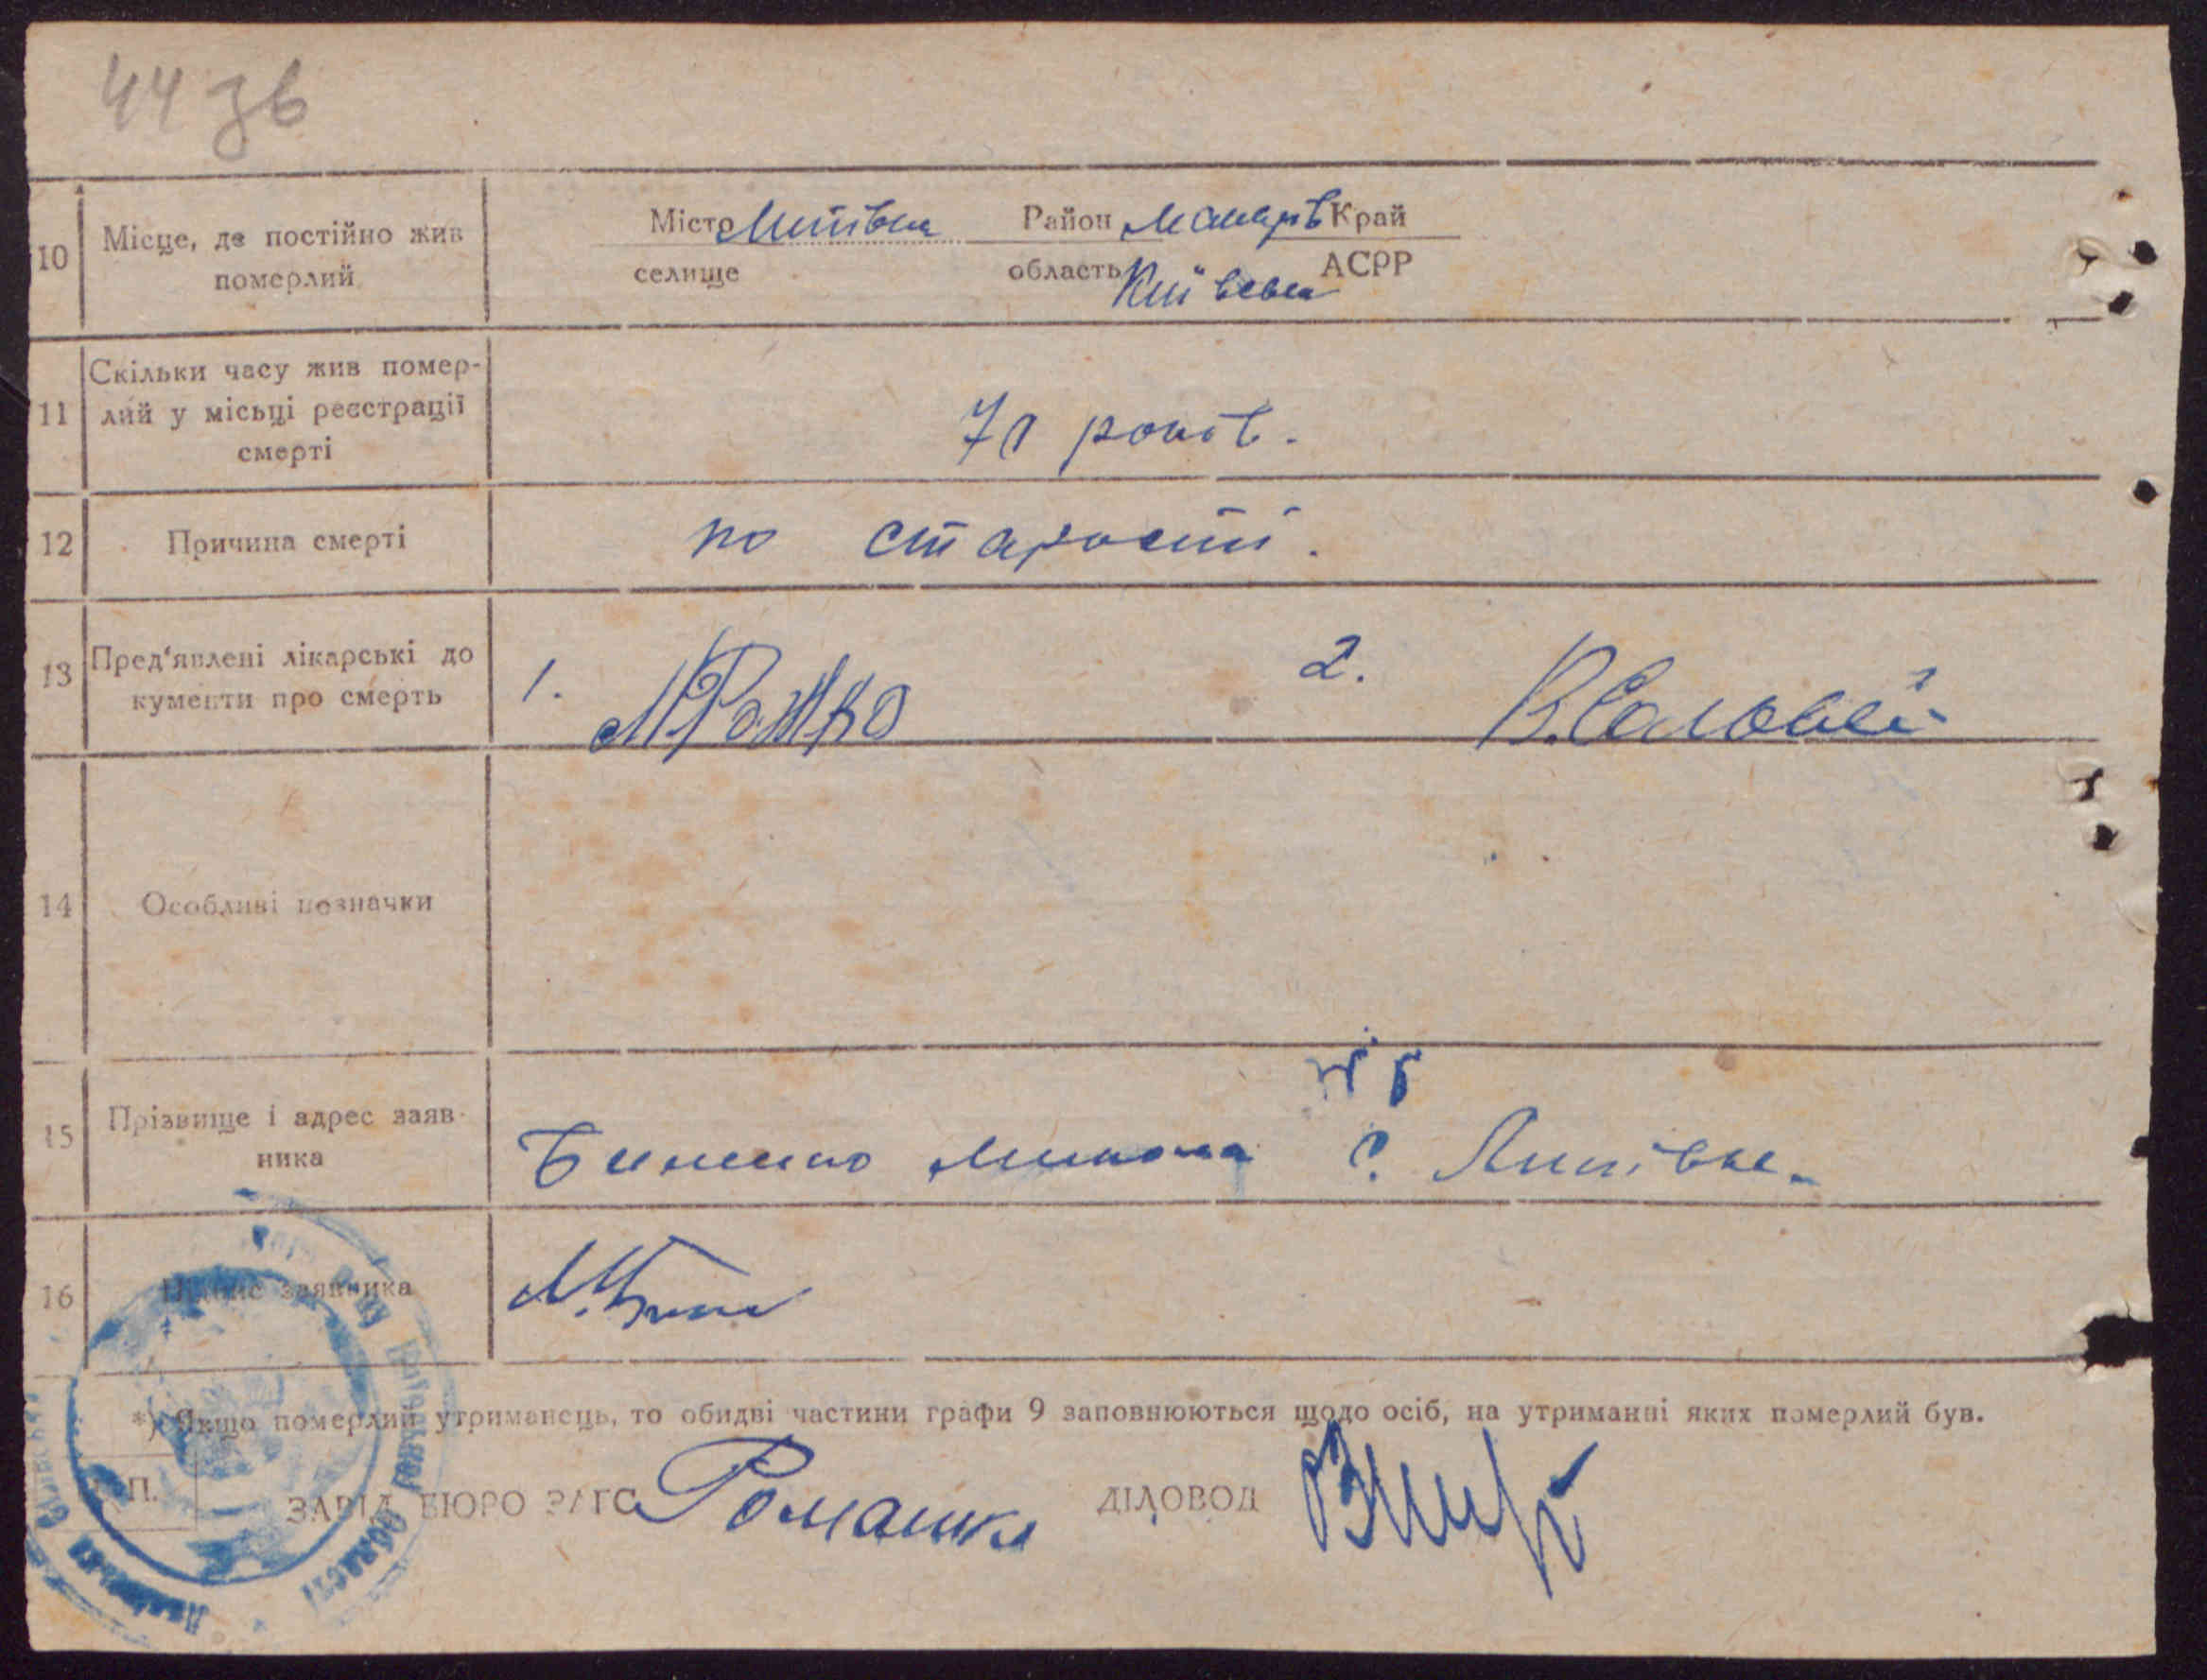 44 зв
10 Місце, де постійно жив померлий
Місто Липівка Район Макарів Край
селище область Київська АСРР
11 Скільки часу жив помер-
лий у місьці реєстрації
смерті
70 років.
12 Причина смерті
по старості.
13 Пред'явлені лікарські до
кументи про смерть
1. М Рожко 2. В. Соловей
14 Особливі позначки
15 Прізвище і адрес заяв-
ника
Микола с. Липівка.
16 Підпис заявника
*) Якщо померлий утриманець, то обидві частини графи 9 заповнюються щодо осіб, на утриманні яких померлий був.
П.
ЗАВІД. БЮРО ЗАГС Ромашка ДІЛОВОД
Області